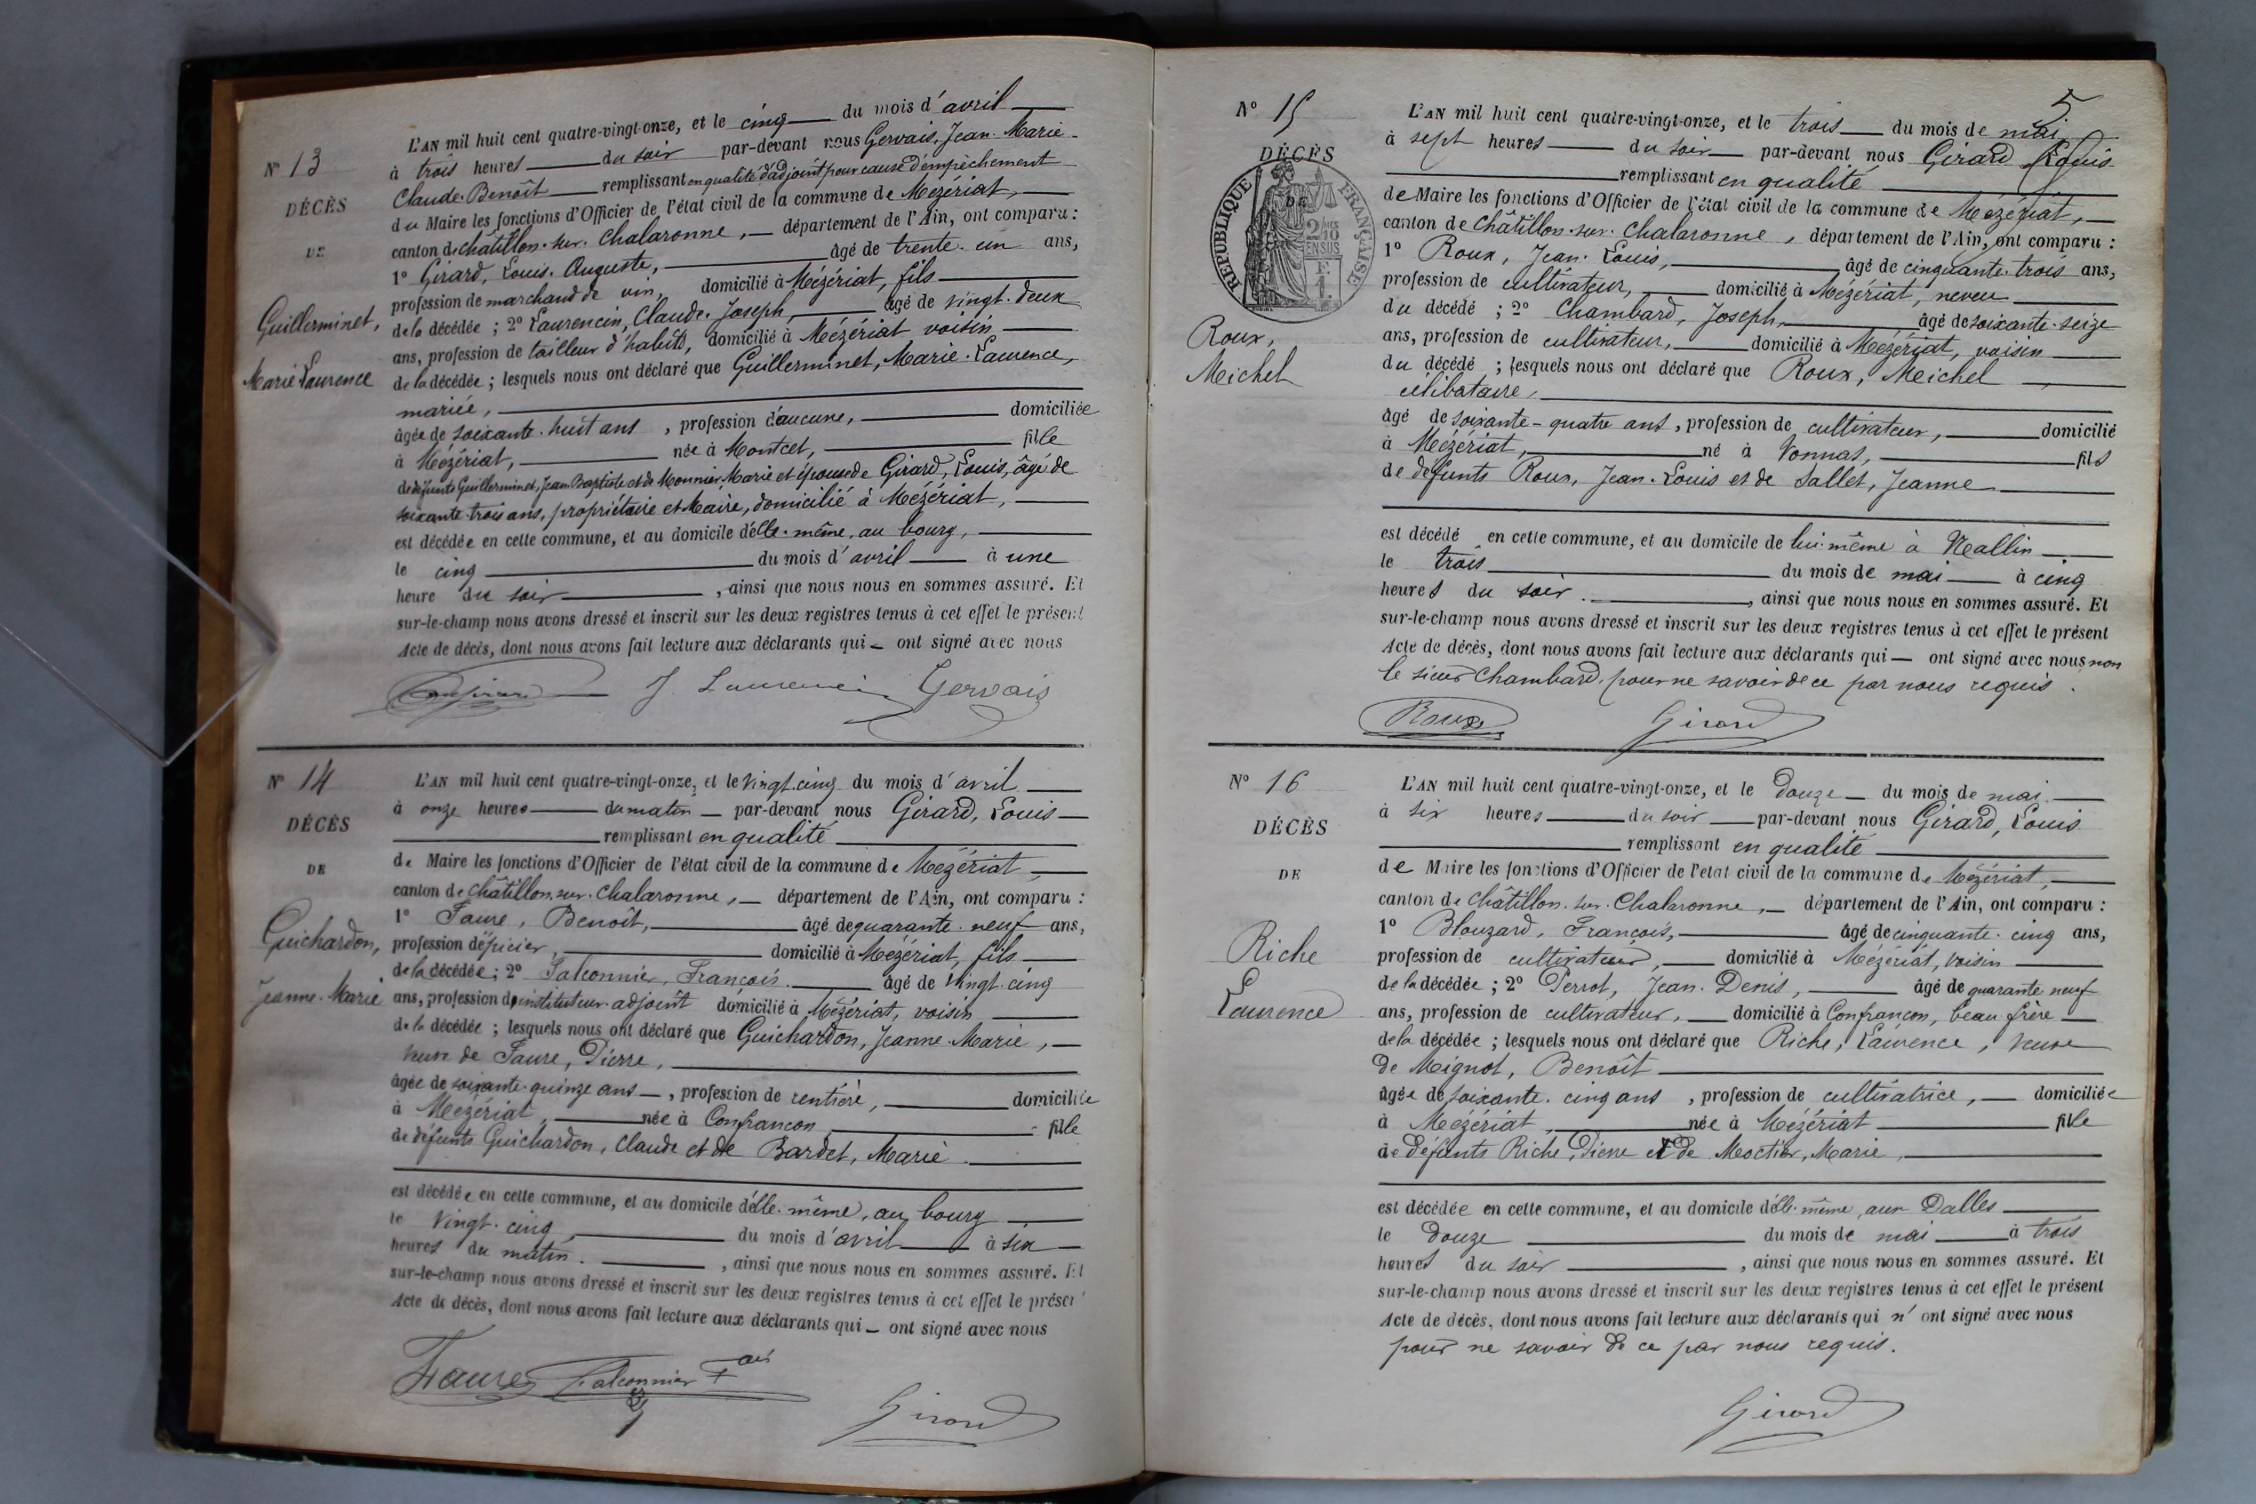 N° 13
DÉCÈS
DE
Guillerminet,
Marie Laurence
L'AN mil huit cent quatre-vingt-onze, et le cinq du mois d'avril
à trois heures du soir par-devant nous Gervais, Jean-Marie-
Claude-Benoît remplissant en qualité d'adjoint pour cause d'empêchement
du Maire les fonctions d'Officier de l'état civil de la commune de Mézériat,
canton de Châtillon-sur-Chalaronne, département de l'Ain, ont comparu :
1° Girard, Louis-Auguste, âgé de trente-un ans,
profession de marchand de vin, domicilié à Mézériat, fils
de la décédée ; 2° Laurencin, Claude-Joseph, âgé de vingt-deux
ans, profession de tailleur d'habits, domicilié à Mézériat voisin
de la décédée ; lesquels nous ont déclaré que Guillerminet, Marie-Laurence,
mariée,
âgée de soixante-huit ans, profession d'aucune, domiciliée
à Mézériat, née à Montcet, fille
de défunts Guillerminet, Jean Baptiste et de Monnier Marie et épouse de Girard, Louis, âgé de
soixante-trois ans, propriétaire et Maire, domicilié à Mézériat,
est décédée en cette commune, et au domicile d'elle-même, au bourg,
le cinq du mois d'avril à une
heure du soir, ainsi que nous nous en sommes assuré. Et
sur-le-champ nous avons dressé et inscrit sur les deux registres tenus à cet effet le présent
Acte de décès, dont nous avons fait lecture aux déclarants qui ont signé avec nous
J. Laurencin Gervais
N° 14
DÉCÈS
DE
Guichardon,
Jeanne-Marie
L'AN mil huit cent quatre-vingt-onze, et le vingt-cinq du mois d'avril
à onze heures du matin par-devant nous Girard, Louis
remplissant en qualité
de Maire les fonctions d'Officier de l'état civil de la commune de Mézériat
canton de Châtillon-sur-Chalaronne, département de l'Ain, ont comparu :
1° Faure, Benoît, âgé de quarante-neuf ans,
profession d'épicier, domicilié à Mézériat, fils
de la décédée ; 2° Falconnier, François, âgé de vingt-cinq
ans, profession d'instituteur-adjoint domicilié à Mézériat, voisin
de la décédée ; lesquels nous ont déclaré que Guichardon, Jeanne-Marie,
veuve de Faure, Pierre,
âgée de soixante-quinze ans, profession de rentière, domiciliée
à Mézériat, née à Confrançon, fille
de défunts Guichardon, Claude et de Bardet, Marie.
est décédée en cette commune, et au domicile d'elle-même, au bourg
le vingt-cinq, du mois d'avril à six
heures du matin, ainsi que nous nous en sommes assuré. Et
sur-le-champ nous avons dressé et inscrit sur les deux registres tenus à cet effet le présent
Acte de décès, dont nous avons fait lecture aux déclarants qui ont signé avec nous
Faure Falconnier Fçois
Girard
5
N° 15
DÉCÈS
DE
RÉPUBLIQUE FRANÇAISE
2/10 EN SUS
Roux,
Michel
L'AN mil huit cent quatre-vingt-onze, et le trois du mois de mai
à sept heures du soir par-devant nous Girard Louis
remplissant en qualité
de Maire les fonctions d'Officier de l'état civil de la commune de Mézériat,
canton de Châtillon-sur-Chalaronne, département de l'Ain, ont comparu :
1° Roux, Jean-Louis, âgé de cinquante-trois ans,
profession de cultivateur, domicilié à Mézériat, neveu
du décédé ; 2° Chambard, Joseph, âgé de soixante-seize
ans, profession de cultivateur, domicilié à Mézériat, voisin
du décédé ; lesquels nous ont déclaré que Roux, Michel
célibataire,
âgé de soixante-quatre ans, profession de cultivateur, domicilié
à Mézériat, né à Vonnas, fils
de défunts Roux, Jean-Louis et de Sallet, Jeanne
est décédé en cette commune, et au domicile de lui-même à Néallin
le trois du mois de mai à cinq
heures du soir, ainsi que nous nous en sommes assuré. Et
sur-le-champ nous avons dressé et inscrit sur les deux registres tenus à cet effet le présent
Acte de décès, dont nous avons fait lecture aux déclarants qui ont signé avec nous non
le sieur Chambard, pour ne savoir de ce par nous requis.
Roux Girard
N° 16
DÉCÈS
DE
Riche
Laurence
L'AN mil huit cent quatre-vingt-onze, et le douze du mois de mai
à six heures du soir par-devant nous Girard, Louis
remplissant en qualité
de Maire les fonctions d'Officier de l'état civil de la commune de Mézériat,
canton de Châtillon-sur-Chalaronne, département de l'Ain, ont comparu :
1° Blouzard, François, âgé de cinquante-cinq ans,
profession de cultivateur, domicilié à Mézériat, voisin
de la décédée ; 2° Perrot, Jean-Denis, âgé de quarante neuf
ans, profession de cultivateur, domicilié à Confrançon, beau frère
de la décédée ; lesquels nous ont déclaré que Riche, Laurence, veuve
de Mignot, Benoît
âgée de soixante-cinq ans, profession de cultivatrice, domiciliée
à Mézériat, née à Mézériat fille
de défunts Riche, Pierre et de Moctier, Marie,
est décédée en cette commune, et au domicile d'elle-même, aux Dalles
le douze du mois de mai à trois
heures du soir, ainsi que nous nous en sommes assuré. Et
sur-le-champ nous avons dressé et inscrit sur les deux registres tenus à cet effet le présent
Acte de décès, dont nous avons fait lecture aux déclarants qui n'ont signé avec nous
pour ne savoir de ce par nous requis.
Girard